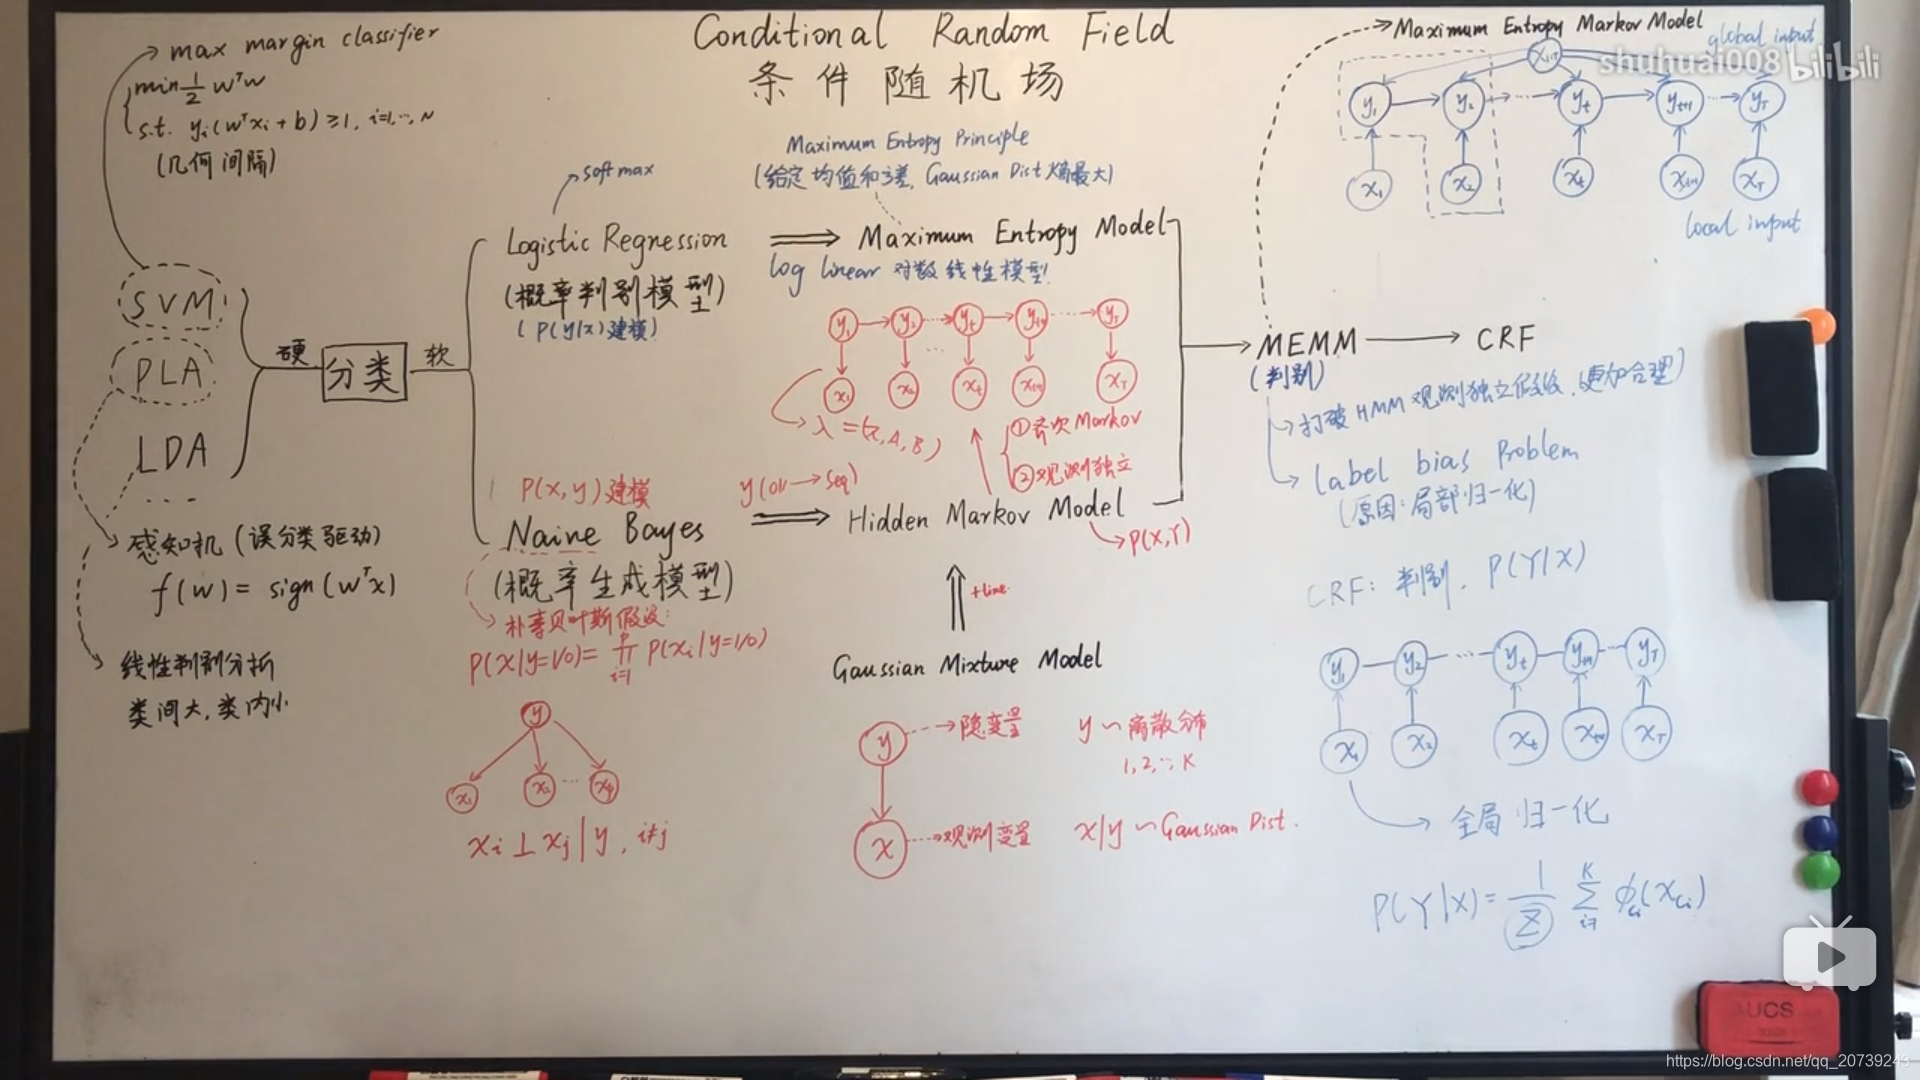 Conditional Random Field
条件随机场
max margin classifier
min 1/2 wᵀw
s.t. yᵢ(wᵀxᵢ+b)≥1, i=1,…,N
(几何间隔)
SVM
PLA
LDA
...
感知机(误分类驱动)
f(w) = sign(wᵀx)
线性判别分析
类间大,类内小
硬
分类
软
softmax
Logistic Regression
(概率判别模型)
(P(y|x)建模)
P(x,y)建模
Naive Bayes
(概率生成模型)
朴素贝叶斯假设:
P(x|y=1/0) = ∏ᵢ₌₁ᵖ P(xᵢ|y=1/0)
y
x₁ x₂ … xₚ
xᵢ ⊥ xⱼ | y, i≠j
Maximum Entropy Principle
(给定均值和方差, Gaussian Dist 熵最大)
Maximum Entropy Model
log linear 对数线性模型
y₁ y₂ … yₜ yₜ₊₁ … y_T
x₁ x₂ xₜ xₜ₊₁ x_T
λ=(π,A,B)
①齐次Markov
②观测独立
y(0/1→seq)
Hidden Markov Model
P(X,Y)
+time
Gaussian Mixture Model
y
隐变量
y ~ 离散分布
1,2,…,K
x
观测变量
x|y ~ Gaussian Dist.
Maximum Entropy Markov Model
global input
x₁:T
y₁ y₂ … yₜ yₜ₊₁ … y_T
x₁ x₂ xₜ xₜ₊₁ x_T
local input
MEMM
(判别)
CRF
打破HMM观测独立假设.(更加合理)
Label bias Problem
(原因:局部归一化)
CRF: 判别. P(Y|X)
y₁ y₂ … yₜ yₜ₊₁ … y_T
x₁ x₂ xₜ xₜ₊₁ x_T
全局归一化
P(Y|X) = 1/Z ∑ᵢ₌₁ᴷ ϕcᵢ(xcᵢ)
shuhuai008 bilibili
AUCS
https://blog.csdn.net/qq_20739243